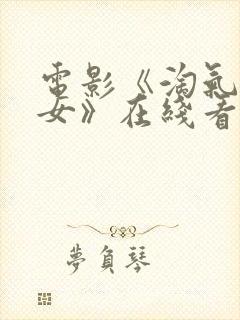 電影《淘氣
女》在綫看
夢負琴